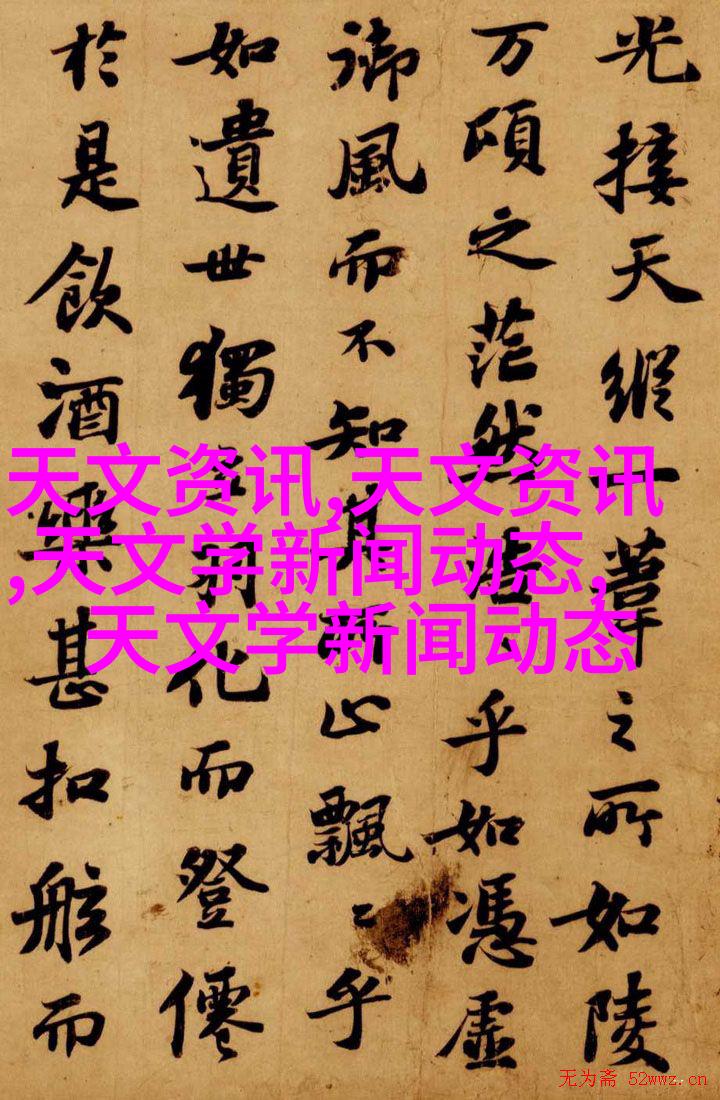 光接天縱一葦之所如陵
万頃之茫然浩〻乎如憑虛
御風而不知其所止飄〻乎
如遺世獨立羽化而登僊
於是飲酒樂甚扣舷而
天文资讯,天文资讯
,天文学新闻动态,
天文学新闻动态
无为斋 52wwz.cn